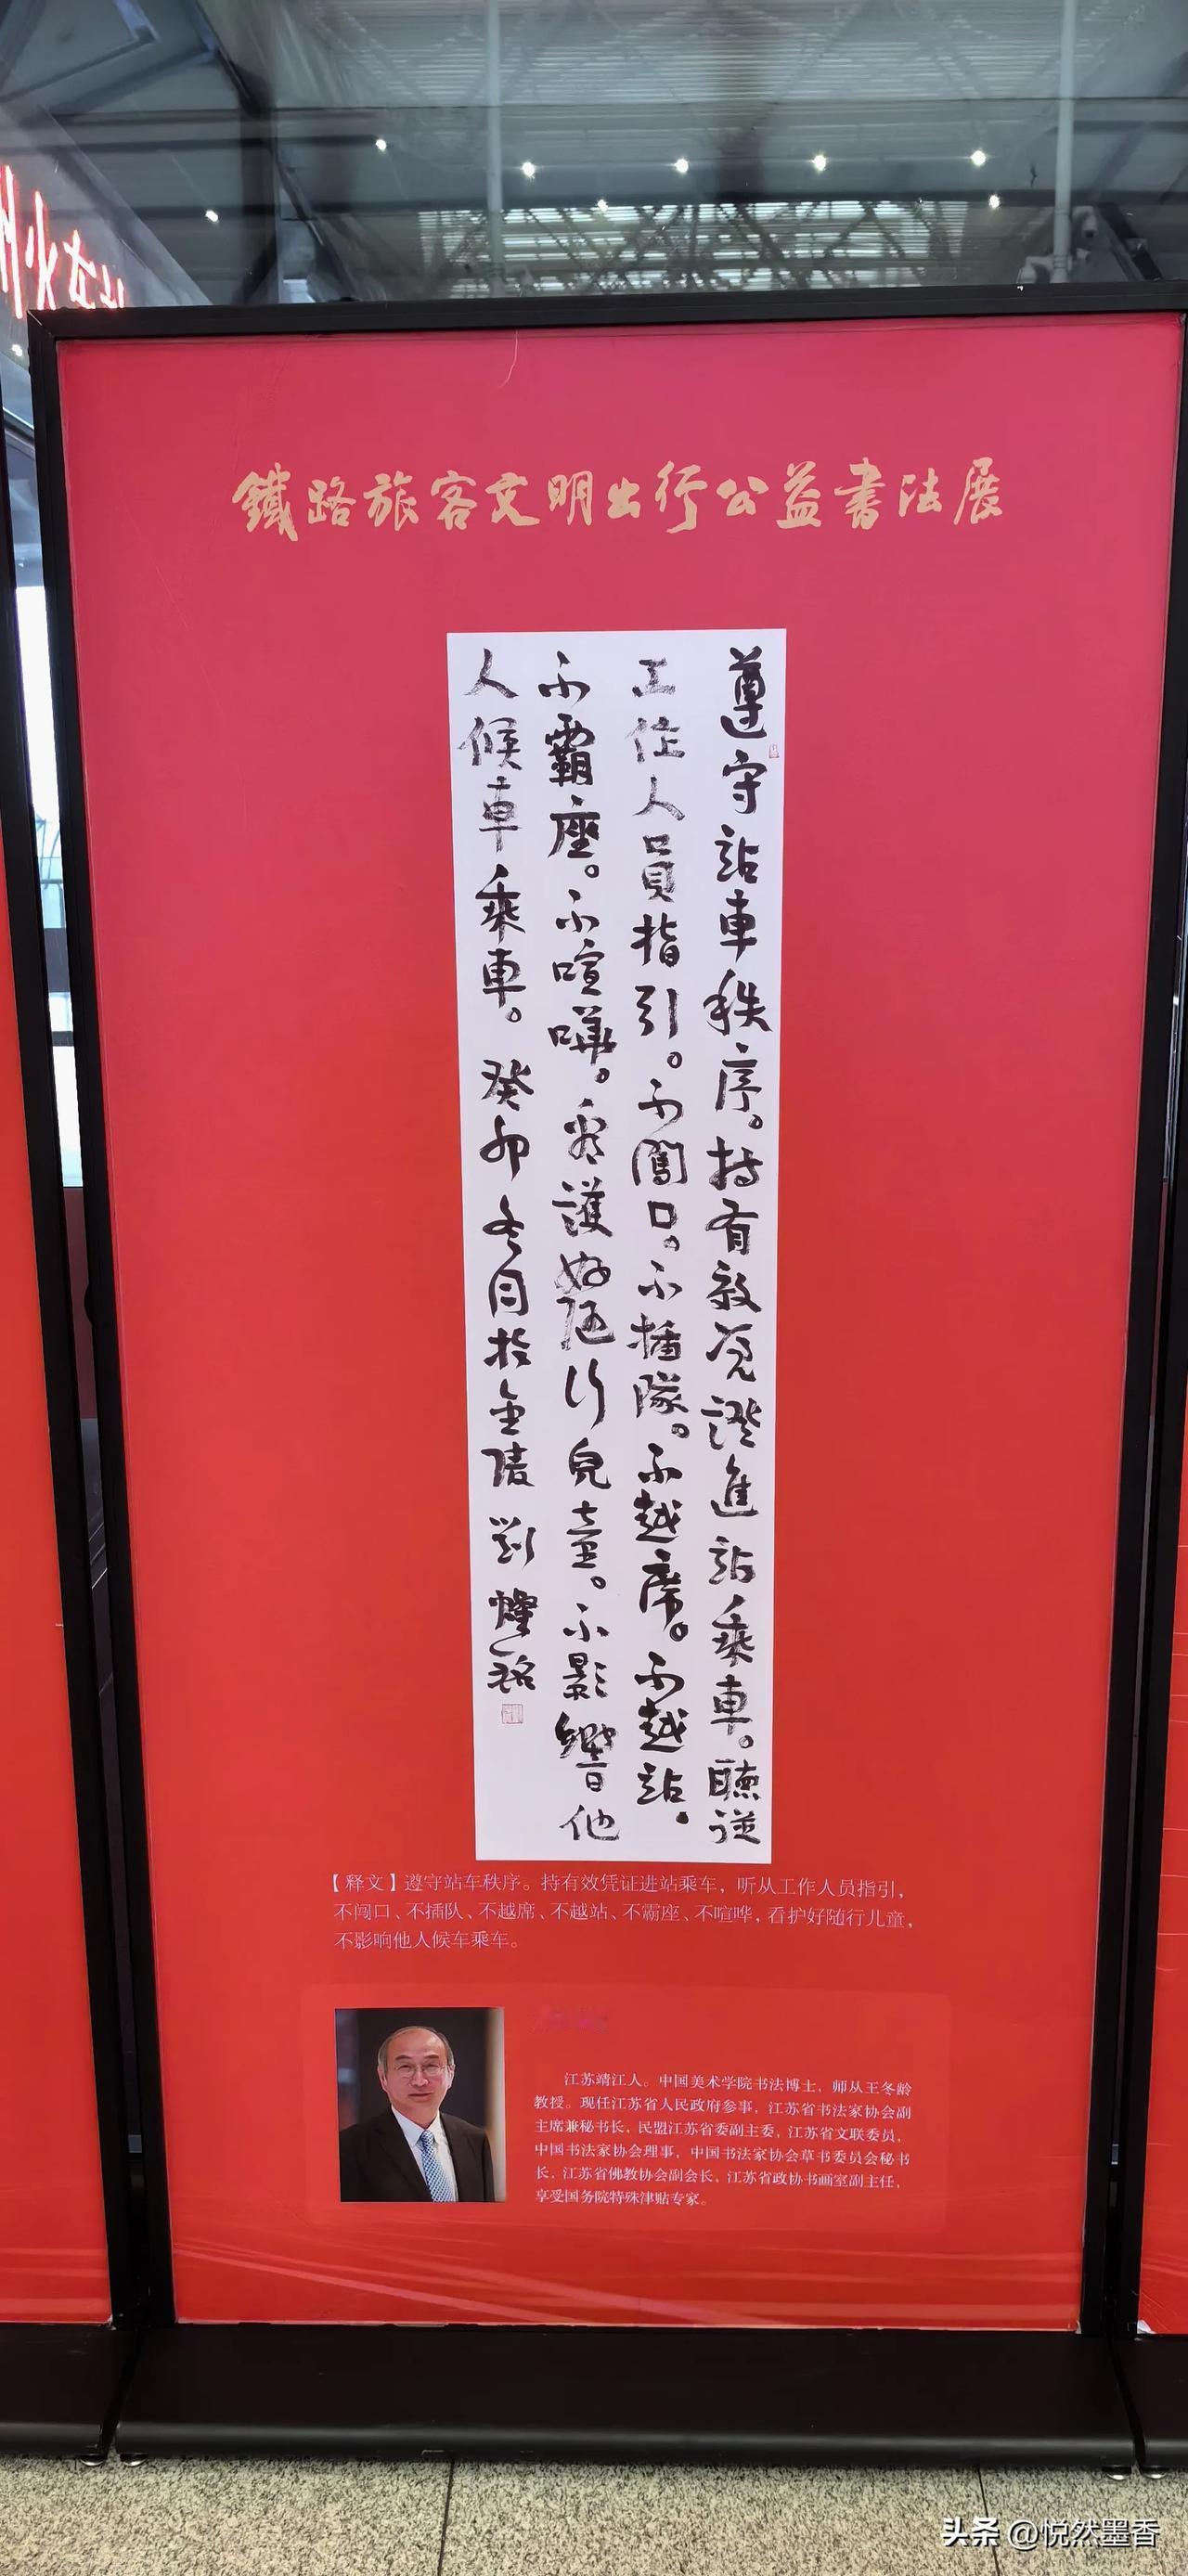 鐵路旅客文明出行公益書法展
遵守站車秩序。持有效凭證進站乘車。聽從
工作人員指引。不闖口。不插隊。不越席。不越站。
不霸座。不喧嘩。看護好隨行兒童。不影響他
人候車乘車。 癸卯冬月於金陵 劉燦銘
【释文】遵守站车秩序。持有效凭证进站乘车，听从工作人员指引，
不闯口、不插队、不越席、不越站、不霸座、不喧哗，看护好随行儿童，
不影响他人候车乘车。
江苏靖江人。中国美术学院书法博士，师从王冬龄
教授。现任江苏省人民政府参事，江苏省书法家协会副
主席兼秘书长，民盟江苏省委副主委，江苏省文联委员，
中国书法家协会理事，中国书法家协会草书委员会秘书
长，江苏省佛教协会副会长，江苏省政协书画室副主任，
享受国务院特殊津贴专家。
头条 @悦然墨香